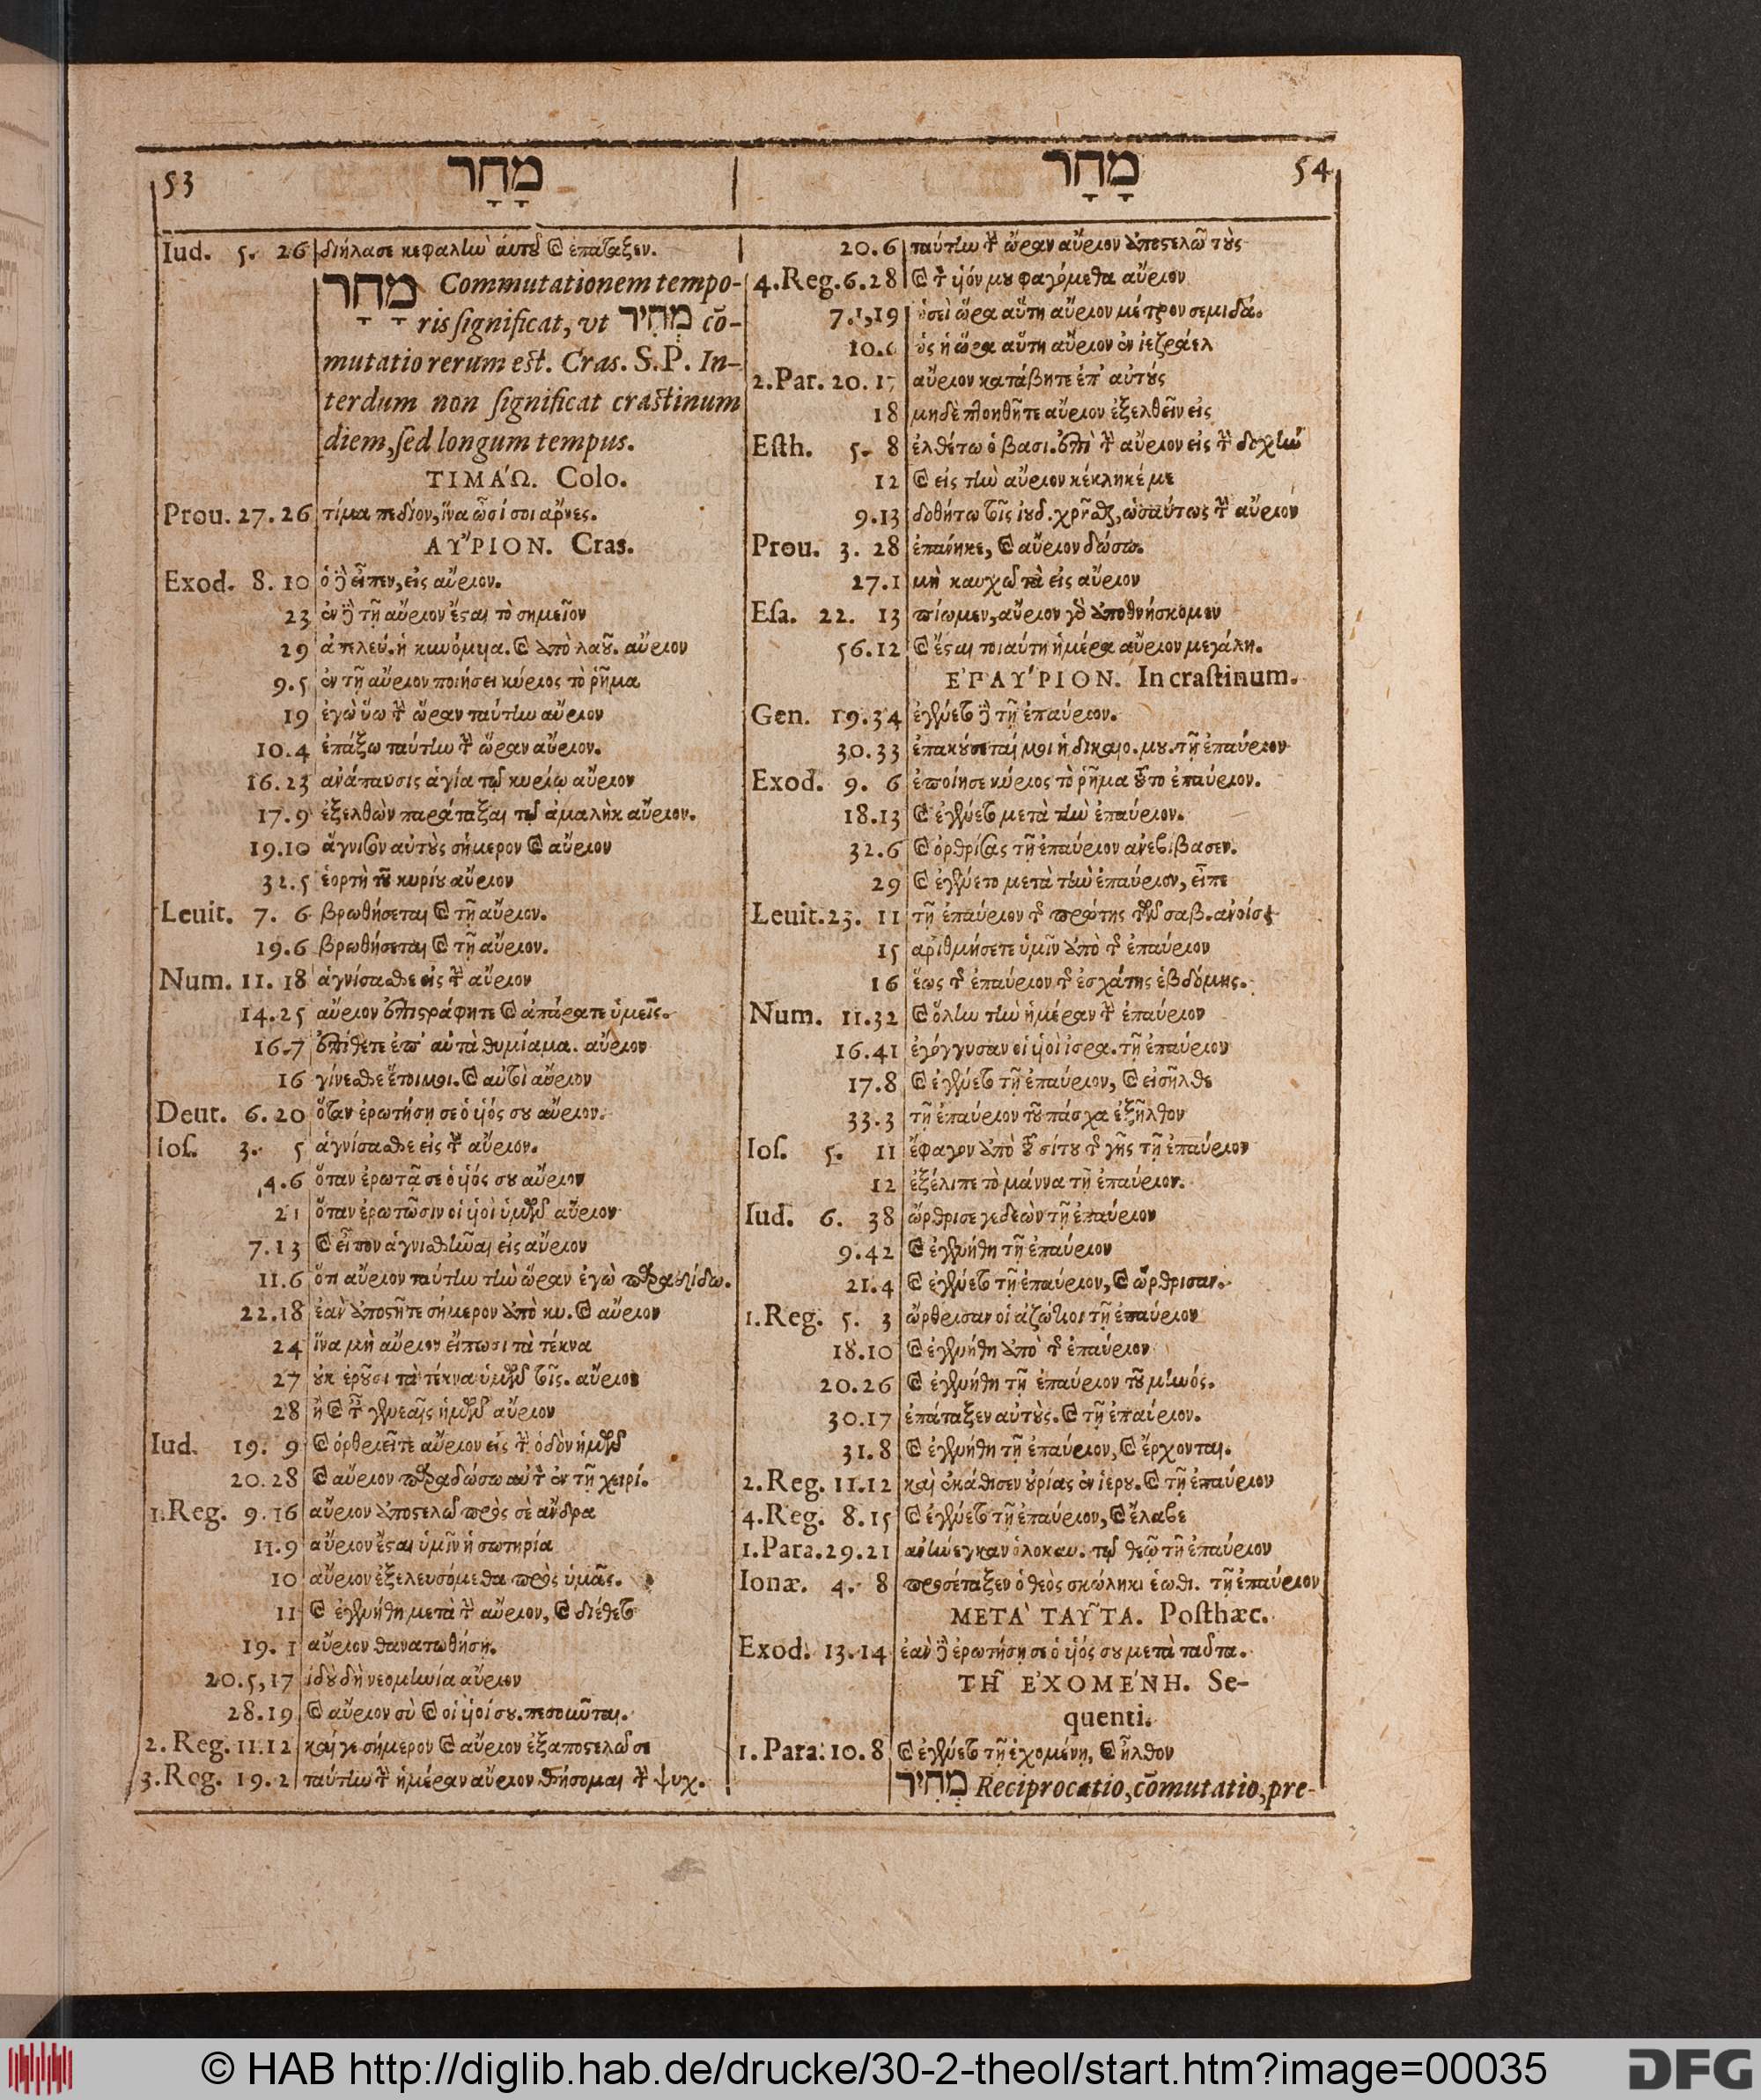 53 מָחָר
Iud. 5. 26 διήλασε κεφαλὴν αὐτοῦ καὶ ἐπάταξεν.
מָחָר Commutationem tempo-
ris significat, vt מְחִיר cō-
mutatio rerum est. Cras. S.P. In-
terdum non significat crastinum
diem, sed longum tempus.
ΤΙΜΑ΄Ω. Colo.
Prou. 27. 26 τίμα πεδίον, ἵνα ὦσί σοι ἄρνες.
ΑΥ῎ΡΙΟΝ. Cras.
Exod. 8. 10 ὁ δὲ εἶπεν, εἰς αὔριον.
23 ἐν δὲ τῇ αὔριον ἔσται τὸ σημεῖον
29 ἀπελεύ. ἡ κυνόμυια. καὶ ἀπὸ λαοῦ. αὔριον
9. 5 ἐν τῇ αὔριον ποιήσει κύριος τὸ ῥῆμα
19 ἐγὼ ὕω τὴν ὥραν ταύτην αὔριον
10. 4 ἐπάξω ταύτην τὴν ὥραν αὔριον.
16. 23 ἀνάπαυσις ἁγία τῷ κυρίῳ αὔριον
17. 9 ἐξελθὼν παράταξαι τῷ ἀμαλὴκ αὔριον.
19. 10 ἅγνισον αὐτοὺς σήμερον καὶ αὔριον
32. 5 ἑορτὴ τοῦ κυρίου αὔριον
Leuit. 7. 6 βρωθήσεται καὶ τῇ αὔριον.
19. 6 βρωθήσεται καὶ τῇ αὔριον.
Num. 11. 18 ἁγνίσασθε εἰς τὴν αὔριον
14. 25 αὔριον ἐπιστράφητε καὶ ἀπάρατε ὑμεῖς.
16. 7 ἐπίθετε ἐπ' αὐτὰ θυμίαμα. αὔριον
16 γίνεσθε ἕτοιμοι. καὶ αὐτοὶ αὔριον
Deut. 6. 20 ὅταν ἐρωτήσῃ σε ὁ υἱός σου αὔριον.
Ios. 3. 5 ἁγνίσασθε εἰς τὴν αὔριον.
4. 6 ὅταν ἐρωτᾷ σε ὁ υἱός σου αὔριον
21 ὅταν ἐρωτῶσιν οἱ υἱοὶ ὑμῶν αὔριον
7. 13 καὶ εἶπον ἁγνισθῆναι εἰς αὔριον
11. 6 ὅτι αὔριον ταύτην τὴν ὥραν ἐγὼ παραδίδω.
22. 18 ἐὰν ἀποστῆτε σήμερον ἀπὸ κυ. καὶ αὔριον
24 ἵνα μὴ αὔριον εἴπωσι τὰ τέκνα
27 οὐκ ἐροῦσι τὰ τέκνα ὑμῶν τοῖς. αὔριον
28 ἢ καὶ ταῖς γενεαῖς ἡμῶν αὔριον
Iud. 19. 9 καὶ ὀρθριεῖτε αὔριον εἰς τὴν ὁδὸν ἡμῶν
20. 28 καὶ αὔριον παραδώσω αὐτὸν ἐν τῇ χειρί.
1. Reg. 9. 16 αὔριον ἀποστελῶ πρὸς σὲ ἄνδρα
11. 9 αὔριον ἔσται ὑμῖν ἡ σωτηρία
10 αὔριον ἐξελευσόμεθα πρὸς ὑμᾶς.
11 καὶ ἐγενήθη μετὰ τὴν αὔριον, καὶ διέθετο
19. 1 αὔριον θανατωθήσῃ.
20. 5, 17 ἰδοὺ δὴ νεομηνία αὔριον
28. 19 καὶ αὔριον σὺ καὶ οἱ υἱοί σου. πεσοῦνται.
2. Reg. 11. 12 καί γε σήμερον καὶ αὔριον ἐξαποστελῶ σε
3. Reg. 19. 2 ταύτην τὴν ἡμέραν αὔριον θήσομαι τὴν ψυχ.
מָחָר 54
20. 6 ταύτην τὴν ὥραν αὔριον ἀποστελῶ τοὺς
4. Reg. 6. 28 καὶ τὸν υἱόν μου φαγόμεθα αὔριον
7. 1, 19 ὡσεὶ ὥρα αὕτη αὔριον μέτρον σεμιδά.
10. 6 ὡς ἡ ὥρα αὕτη αὔριον ἐν ἰεζράελ
2. Par. 20. 17 αὔριον κατάβητε ἐπ' αὐτούς
18 μηδὲ πτοηθῆτε αὔριον ἐξελθεῖν εἰς
Esth. 5. 8 ἐλθέτω ὁ βασι. ἐπὶ τὴν αὔριον εἰς τὴν δοχὴν
12 καὶ εἰς τὴν αὔριον κέκληκέ με
9. 13 δοθήτω τοῖς ἰουδ. χρῆσθαι, ὡσαύτως τὴν αὔριον
Prou. 3. 28 ἐπάνηκε, καὶ αὔριον δώσω.
27. 1 μὴ καυχῶ τὰ εἰς αὔριον
Esa. 22. 13 πίωμεν, αὔριον γὰρ ἀποθνήσκομεν
56. 12 καὶ ἔσται τοιαύτη ἡμέρα αὔριον μεγάλη.
ΕΠΑΥ΄ΡΙΟΝ. In crastinum.
Gen. 19. 34 ἐγένετο δὲ τῇ ἐπαύριον.
30. 33 ἐπακούσεταί μοι ἡ δικαιο. μου. τῇ ἐπαύριον
Exod. 9. 6 ἐποίησε κύριος τὸ ῥῆμα τοῦτο ἐπαύριον.
18. 13 καὶ ἐγένετο μετὰ τὴν ἐπαύριον.
32. 6 καὶ ὀρθρίσας τῇ ἐπαύριον ἀνεβίβασεν.
29 καὶ ἐγένετο μετὰ τὴν ἐπαύριον, εἶπε
Leuit. 23. 11 τῇ ἐπαύριον τῆς πρώτης τῶν σαβ. ἀνοίσει
15 ἀριθμήσετε ὑμῖν ἀπὸ τῆς ἐπαύριον
16 ἕως τῆς ἐπαύριον τῆς ἐσχάτης ἑβδόμης.
Num. 11. 32 καὶ ὅλην τὴν ἡμέραν τὴν ἐπαύριον
16. 41 ἐγόγγυσαν οἱ υἱοὶ ἰσρα. τῇ ἐπαύριον
17. 8 καὶ ἐγένετο τῇ ἐπαύριον, καὶ εἰσῆλθε
33. 3 τῇ ἐπαύριον τοῦ πάσχα ἐξῆλθον
Ios. 5. 11 ἔφαγον ἀπὸ τοῦ σίτου τῆς γῆς τῇ ἐπαύριον
12 ἐξέλιπε τὸ μάννα τῇ ἐπαύριον.
Iud. 6. 38 ὤρθρισε γεδεὼν τῇ ἐπαύριον
9. 42 καὶ ἐγενήθη τῇ ἐπαύριον
21. 4 καὶ ἐγένετο τῇ ἐπαύριον, καὶ ὤρθρισαν.
1. Reg. 5. 3 ὤρθρισαν οἱ ἀζώτιοι τῇ ἐπαύριον
18. 10 καὶ ἐγενήθη ἀπὸ τῆς ἐπαύριον
20. 26 καὶ ἐγενήθη τῇ ἐπαύριον τοῦ μηνός.
30. 17 ἐπάταξεν αὐτούς. καὶ τῇ ἐπαύριον.
31. 8 καὶ ἐγενήθη τῇ ἐπαύριον, καὶ ἔρχονται.
2. Reg. 11. 12 καὶ ἐκάθισεν οὐρίας ἐν ἱερου. καὶ τῇ ἐπαύριον
4. Reg. 8. 15 καὶ ἐγένετο τῇ ἐπαύριον, καὶ ἔλαβε
1. Para. 29. 21 ἀνήνεγκαν ὁλοκαυ. τῷ θεῷ τῇ ἐπαύριον
Ionæ. 4. 8 προσέταξεν ὁ θεὸς σκώληκι ἑωθι. τῇ ἐπαύριον
ΜΕΤΑ` ΤΑΥ͂ΤΑ. Posthæc.
Exod. 13. 14 ἐὰν δὲ ἐρωτήσῃ σε ὁ υἱός σου μετὰ ταῦτα.
ΤΗ͂ Ε᾿ΧΟΜΕ΄ΝΗ. Se-
quenti.
1. Para. 10. 8 καὶ ἐγένετο τῇ ἐχομένῃ, καὶ ἦλθον
מְחִיר Reciprocatio, cōmutatio, pre-
© HAB http://diglib.hab.de/drucke/30-2-theol/start.htm?image=00035
DFG